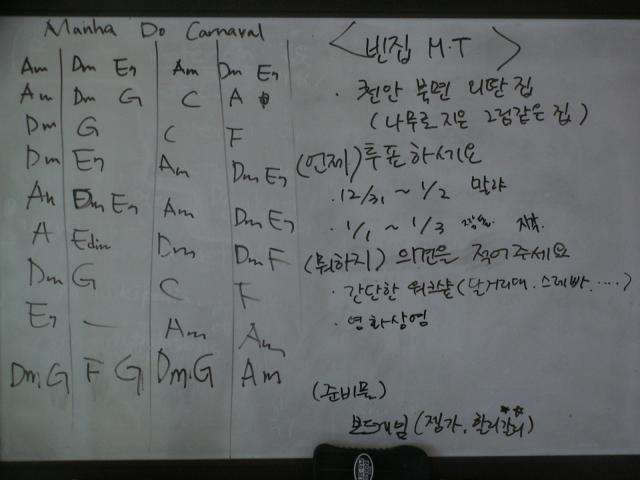 Manha Do Carnaval
Am Dm E7 Am Dm E7
Am Dm G C A
Dm G C F
Dm E7 Am Dm E7
Am Dm E7 Am Dm E7
A Edim Dm Dm F
Dm G C F
E7 — Am Am
Dm.G F G Dm.G Am
<빈집 M.T>
· 천안 북면 외딴 집
(나무로 지은 그림같은 집)
(언제) 투표하세요
· 12/31 ~ 1/2 말랴
· 1/1 ~ 1/3
(뭐하지) 의견을 적어주세요
· 간단한 워크샵 (달거리대. 스레빠. ....)
· 영화상영
(준비물)
보드게임 (젬가, 할리갈리)